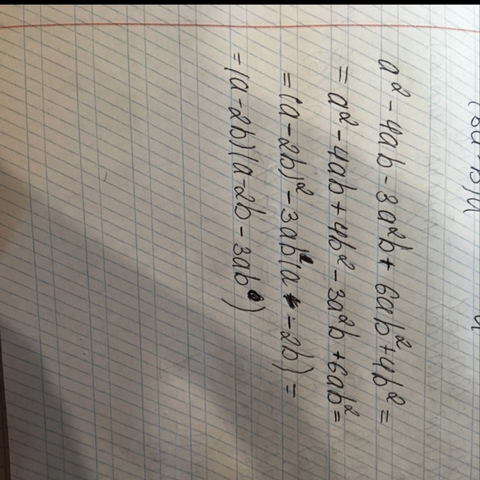 a² - 4ab - 3a²b + 6ab² + 4b² =
= a² - 4ab + 4b² - 3a²b + 6ab² =
= (a - 2b)² - 3ab(a - 2b) =
= (a - 2b)(a - 2b - 3ab)